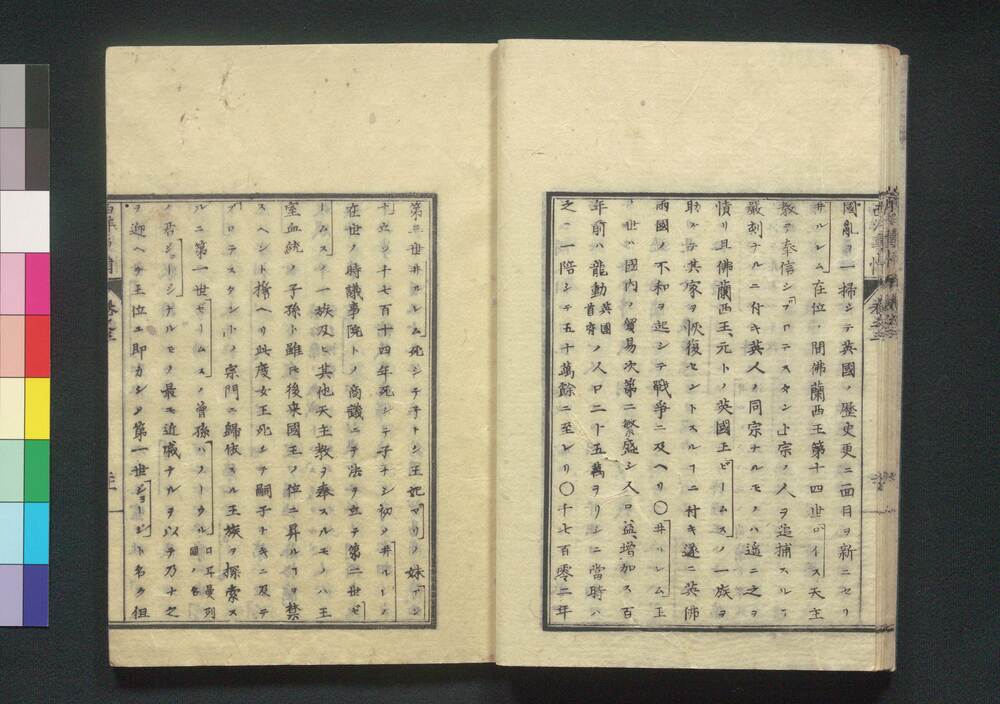 國亂ヲ一掃シテ英國ノ歷史更ニ面目ヲ新ニセリ
井ルレム在位ノ間佛蘭西王第十四世ロイス天主
教ヲ奉信シプロテスタント宗ノ人ヲ追捕スルヿ
嚴刻ナルニ付キ英人ノ同宗ナルモノハ遙ニ之ヲ
憤リ且佛蘭西王元トノ英國王ゼームスノ一族ヲ
助ケテ其家ヲ恢復セントスルヿニ付キ遂ニ英佛
兩國ノ不和ヲ起シテ戰爭ニ及ヘリ〇井ルレム王
ノ世ハ國内ノ貿易次第ニ繁盛シ人口益增加ス百
年前ハ龍動英國首府ノ人口二十五萬ヲリシニ當時ハ
之ニ一陪シテ五十萬餘ニ至レリ〇千七百零二年
第三世井ルレム死シテ子ナシ王妃マリノ妹アン
立シ千七百十四年死シテ子ナシ初メ井ルレム
在世ノ時議事院トノ商議ニテ法ヲ立テ第二世ゼ
ームスノ一族及ヒ其他天主教ヲ奉スルモノハ王
室血統ノ子孫ト雖モ後來國王ノ位ニ昇ルヿヲ禁
スヘシト誓ヘリ此度女王死シテ嗣子ナキニ及テ
プロテスタントノ宗門ニ歸依スル王族ヲ探索ス
ルニ第一世ゼームスノ曾孫ハノーウル日耳曼列國ノ名
ノ君ジョージナルモノ最モ近戚ナルヲ以テ乃ナ之
ヲ迎ヘテ王位ニ即カシメ第一世ジョージト名ク但